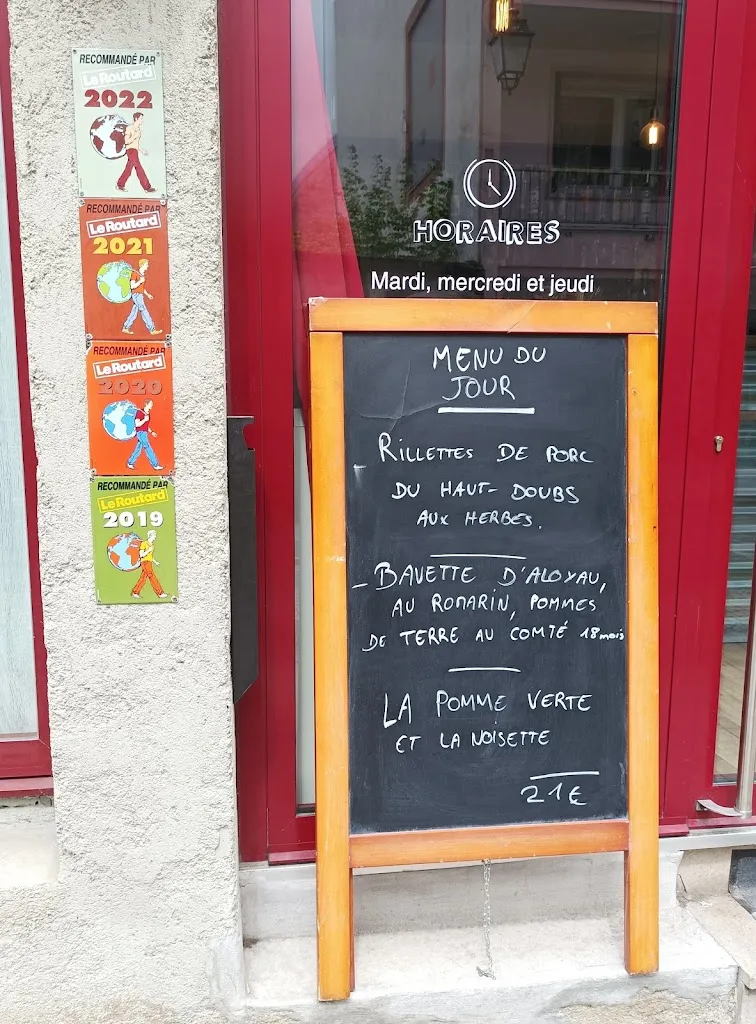 RECOMMANDÉ PAR
Le Routard
2022
RECOMMANDÉ PAR
Le Routard
2021
RECOMMANDÉ PAR
Le Routard
2020
RECOMMANDÉ PAR
Le Routard
2019
HORAIRES
Mardi, mercredi et jeudi
MENU DU
JOUR
RILLETTES DE PORC
DU HAUT-DOUBS
AUX HERBES.
- BAVETTE D'ALOYAU,
AU ROMARIN, POMMES
DE TERRE AU COMTÉ 18 mois
LA POMME VERTE
ET LA NOISETTE
21€